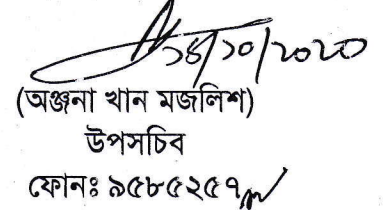 ১৪/১০/২০২০
(অঞ্জনা খান মজলিশ)
উপসচিব
ফোনঃ ৯৫৮৫২৫৭